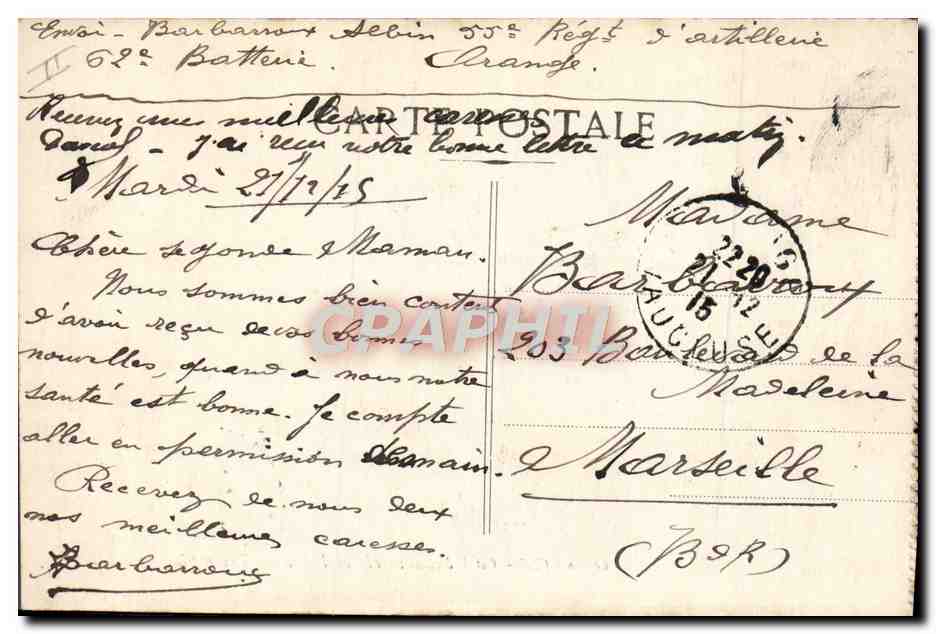 Envoi - Barbarroux Albin 55e Régt d'artillerie
62e Batterie. Orange.
II
Recevez mes meilleures caresses
CARTE POSTALE
J'ai reçu votre bonne lettre ce matin.
Mardi 21/12/15
Chère seconde Maman.
Nous sommes bien content
d'avoir reçu de vos bonnes
nouvelles, quand à nous notre
santé est bonne. Je compte
aller en permission demain.
Recevez de nous deux
nos meilleures caresses.
Barbarroux
Madame
Barbarroux
203 Boulevard de la
Madeleine
Marseille
(B d R)
22 20
21 12
15
VAUCLUSE
CPAPHIL